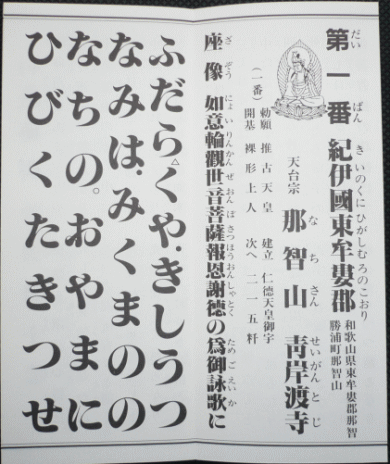 第一番 紀伊國東牟婁郡
だいばん きいのくにひがしむろのこおり
和歌山県東牟婁郡那智
勝浦町那智山
天台宗 那智山 青岸渡寺
なちさん せいがんとじ
(一番) 勅願 推古天皇 建立 仁徳天皇御宇
開基 裸形上人 次へ 二一五粁
座像 如意輪觀世音菩薩報恩謝徳の爲御詠歌に
ざぞう にょいりんかんぜおんぼさつほうおんしゃとく ためごえいか
ふだらくや.きしうつ
なみは.みくまのの
なちの。おやまに
ひびくたきつせ